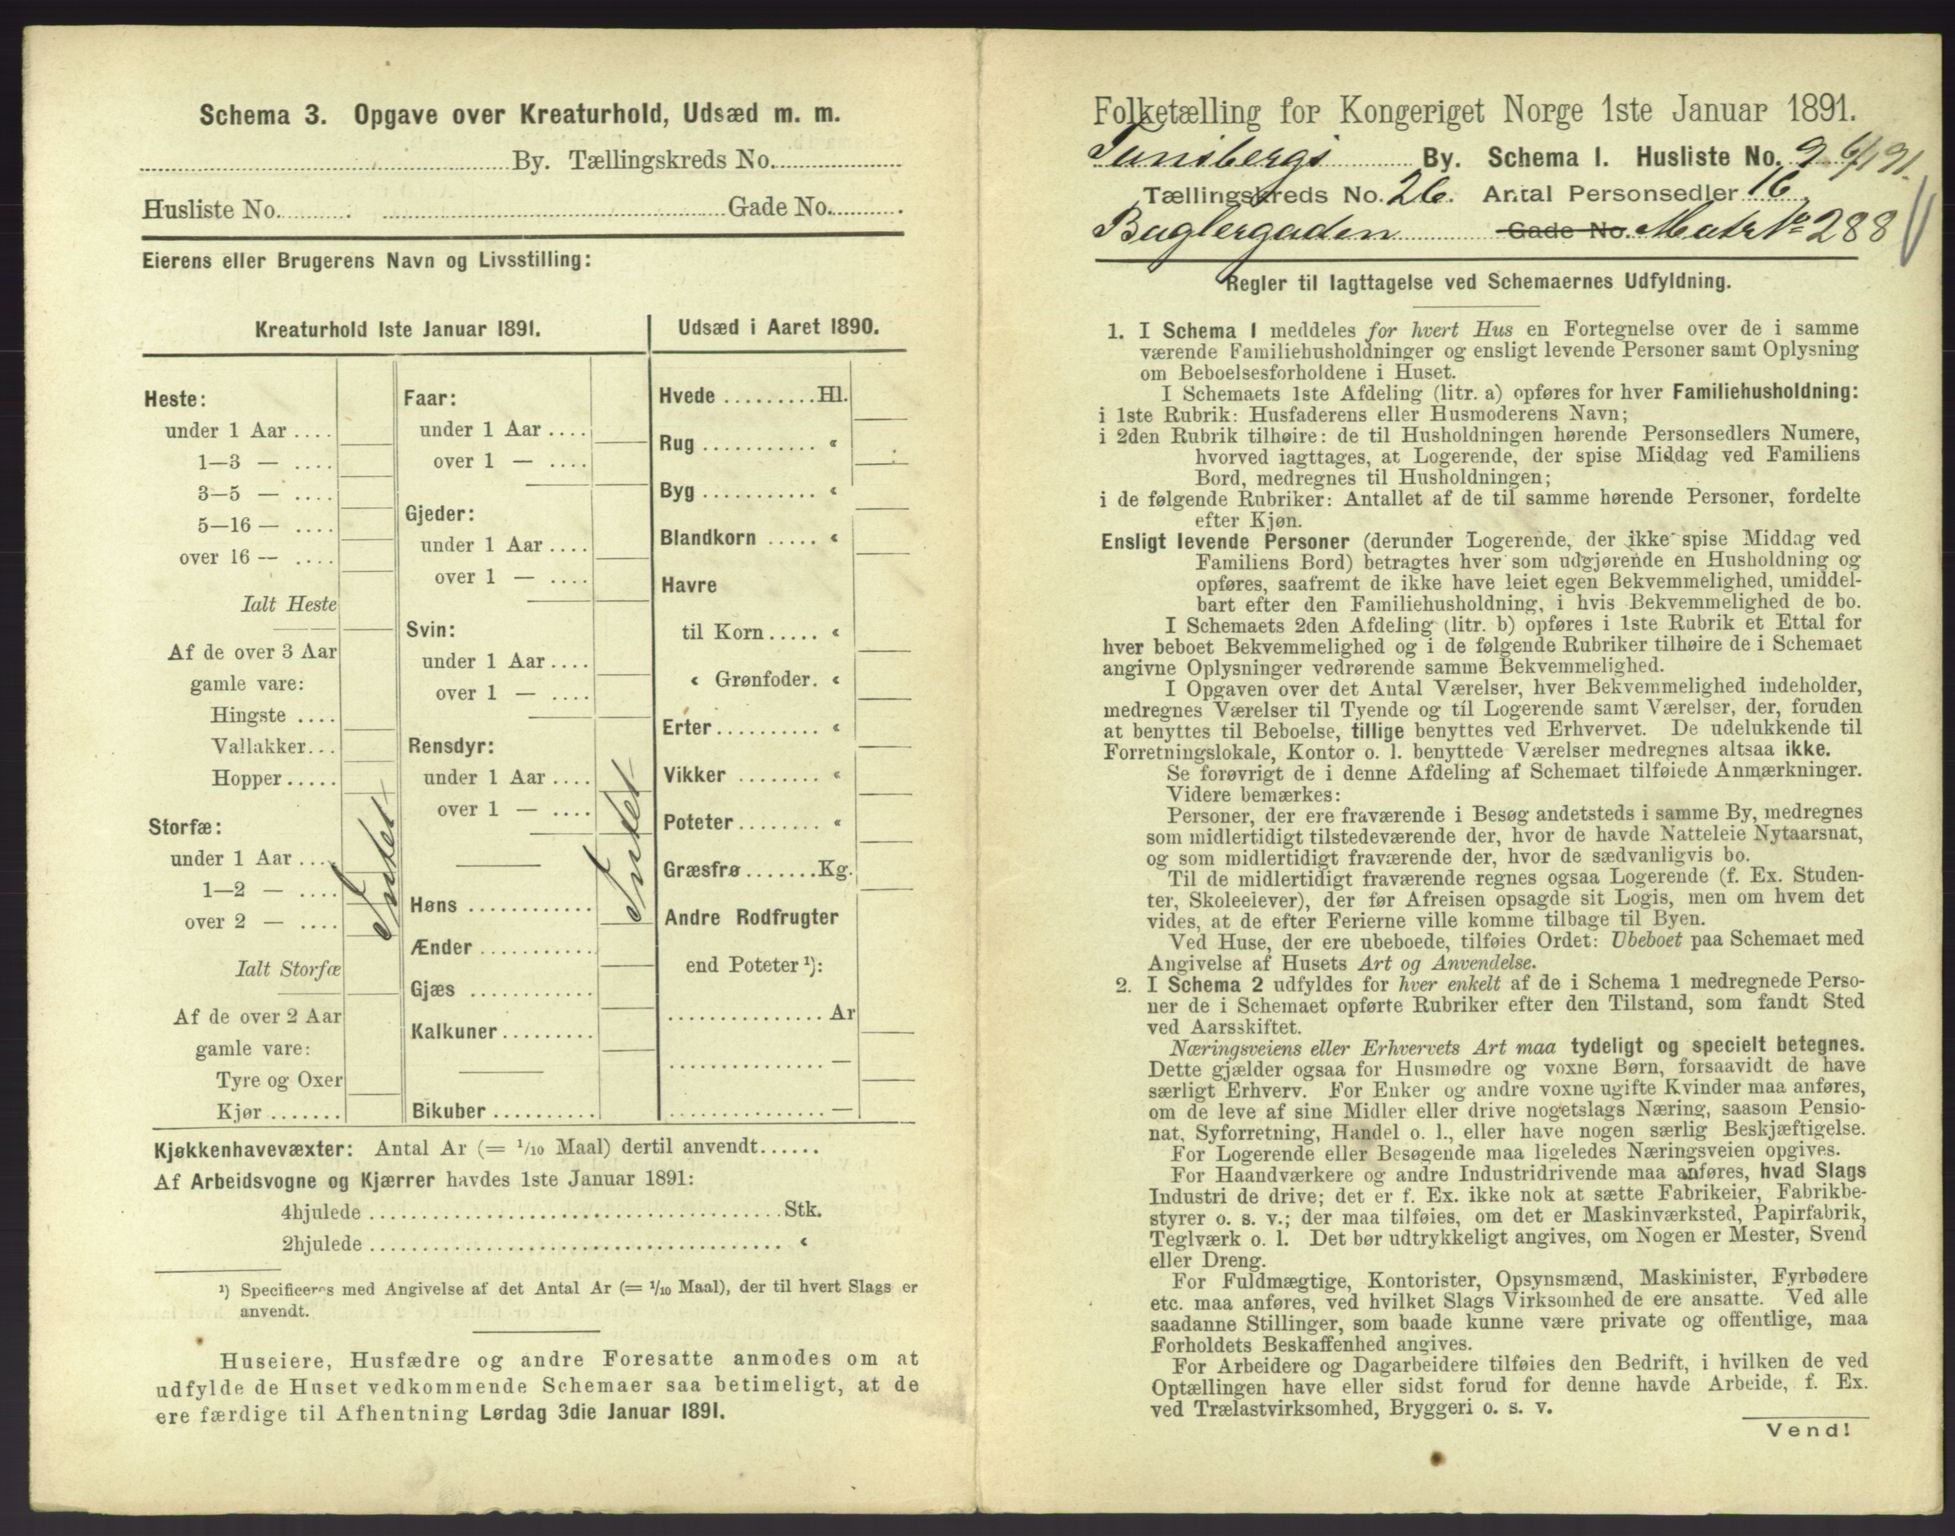 Schema 3. Opgave over Kreaturhold, Udsæd m. m.
By. Tællingskreds No.
Husliste No. Gade No.
Eierens eller Brugerens Navn og Livsstilling:
Kreaturhold 1ste Januar 1891.
Heste:
under 1 Aar ....
1—3 — ....
3—5 — ....
5—16 — ....
over 16 — ....
Ialt Heste
Af de over 3 Aar
gamle vare:
Hingste ....
Vallakker...
Hopper .....
Storfæ:
under 1 Aar ....
1—2 — ....
over 2 — ....
Intet
Ialt Storfæ
Af de over 2 Aar
gamle vare:
Tyre og Oxer
Kjør .......
Faar:
under 1 Aar ....
over 1 — ....
Gjeder:
under 1 Aar ....
over 1 — ....
Svin:
under 1 Aar ....
over 1 — ....
Rensdyr:
under 1 Aar ....
over 1 — ....
Intet
Høns ............
Ænder ...........
Gjæs ............
Kalkuner .........
Bikuber ..........
Udsæd i Aaret 1890.
Hvede .........Hl.
Rug ........... «
Byg ........... «
Blandkorn ..... «
Havre
til Korn ..... «
« Grønfoder. «
Erter .......... «
Vikker ........ «
Poteter ........ «
Græsfrø .......Kg.
Andre Rodfrugter
end Poteter ¹):
............... Ar
............... —
............... —
Kjøkkenhavevæxter: Antal Ar (= 1/10 Maal) dertil anvendt......
Af Arbeidsvogne og Kjærrer havdes 1ste Januar 1891:
4hjulede ........................................Stk.
2hjulede ........................................ «
¹) Specificeres med Angivelse af det Antal Ar (= 1/10 Maal), der til hvert Slags er
anvendt.
Huseiere, Husfædre og andre Foresatte anmodes om at
udfylde de Huset vedkommende Schemaer saa betimeligt, at de
ere færdige til Afhentning Lørdag 3die Januar 1891.
Folketælling for Kongeriget Norge 1ste Januar 1891.
Tunsbergs By. Schema I. Husliste No. 9 6/1 91.
Tællingskreds No. 26. Antal Personsedler 16.
Baglergaden Gade No. Matr No 288
Regler til Iagttagelse ved Schemaernes Udfyldning.
1. I Schema 1 meddeles for hvert Hus en Fortegnelse over de i samme
værende Familiehusholdninger og ensligt levende Personer samt Oplysning
om Beboelsesforholdene i Huset.
I Schemaets 1ste Afdeling (litr. a) opføres for hver Familiehusholdning:
i 1ste Rubrik: Husfaderens eller Husmoderens Navn;
i 2den Rubrik tilhøire: de til Husholdningen hørende Personsedlers Numere,
hvorved iagttages, at Logerende, der spise Middag ved Familiens
Bord, medregnes til Husholdningen;
i de følgende Rubriker: Antallet af de til samme hørende Personer, fordelte
efter Kjøn.
Ensligt levende Personer (derunder Logerende, der ikke spise Middag ved
Familiens Bord) betragtes hver som udgjørende en Husholdning og
opføres, saafremt de ikke have leiet egen Bekvemmelighed, umiddel-
bart efter den Familiehusholdning, i hvis Bekvemmelighed de bo.
I Schemaets 2den Afdeling (litr. b) opføres i 1ste Rubrik et Ettal for
hver beboet Bekvemmelighed og i de følgende Rubriker tilhøire de i Schemaet
angivne Oplysninger vedrørende samme Bekvemmelighed.
I Opgaven over det Antal Værelser, hver Bekvemmelighed indeholder,
medregnes Værelser til Tyende og til Logerende samt Værelser, der, foruden
at benyttes til Beboelse, tillige benyttes ved Erhvervet. De udelukkende til
Forretningslokale, Kontor o. l. benyttede Værelser medregnes altsaa ikke.
Se forøvrigt de i denne Afdeling af Schemaet tilføiede Anmærkninger.
Videre bemærkes:
Personer, der ere fraværende i Besøg andetsteds i samme By, medregnes
som midlertidigt tilstedeværende der, hvor de havde Natteleie Nytaarsnat,
og som midlertidigt fraværende der, hvor de sædvanligvis bo.
Til de midlertidigt fraværende regnes ogsaa Logerende (f. Ex. Studen-
ter, Skoleelever), der før Afreisen opsagde sit Logis, men om hvem det
vides, at de efter Ferierne ville komme tilbage til Byen.
Ved Huse, der ere ubeboede, tilføies Ordet: Ubeboet paa Schemaet med
Angivelse af Husets Art og Anvendelse.
2. I Schema 2 udfyldes for hver enkelt af de i Schema 1 medregnede Perso-
ner de i Schemaet opførte Rubriker efter den Tilstand, som fandt Sted
ved Aarsskiftet.
Næringsveiens eller Erhvervets Art maa tydeligt og specielt betegnes.
Dette gjælder ogsaa for Husmødre og voxne Børn, forsaavidt de have
særligt Erhverv. For Enker og andre voxne ugifte Kvinder maa anføres,
om de leve af sine Midler eller drive nogetslags Næring, saasom Pensio-
nat, Syforretning, Handel o. l., eller have nogen særlig Beskjæftigelse.
For Logerende eller Besøgende maa ligeledes Næringsveien opgives.
For Haandværkere og andre Industridrivende maa anføres, hvad Slags
Industri de drive; det er f. Ex. ikke nok at sætte Fabrikeier, Fabrikbe-
styrer o. s. v.; der maa tilføies, om det er Maskinværksted, Papirfabrik,
Teglværk o. l. Det bør udtrykkeligt angives, om Nogen er Mester, Svend
eller Dreng.
For Fuldmægtige, Kontorister, Opsynsmænd, Maskinister, Fyrbødere
etc. maa anføres, ved hvilket Slags Virksomhed de ere ansatte. Ved alle
saadanne Stillinger, som baade kunne være private og offentlige, maa
Forholdets Beskaffenhed angives.
For Arbeidere og Dagarbeidere tilføies den Bedrift, i hvilken de ved
Optællingen have eller sidst forud for denne havde Arbeide, f. Ex.
ved Trælastvirksomhed, Bryggeri o. s. v.
Vend!